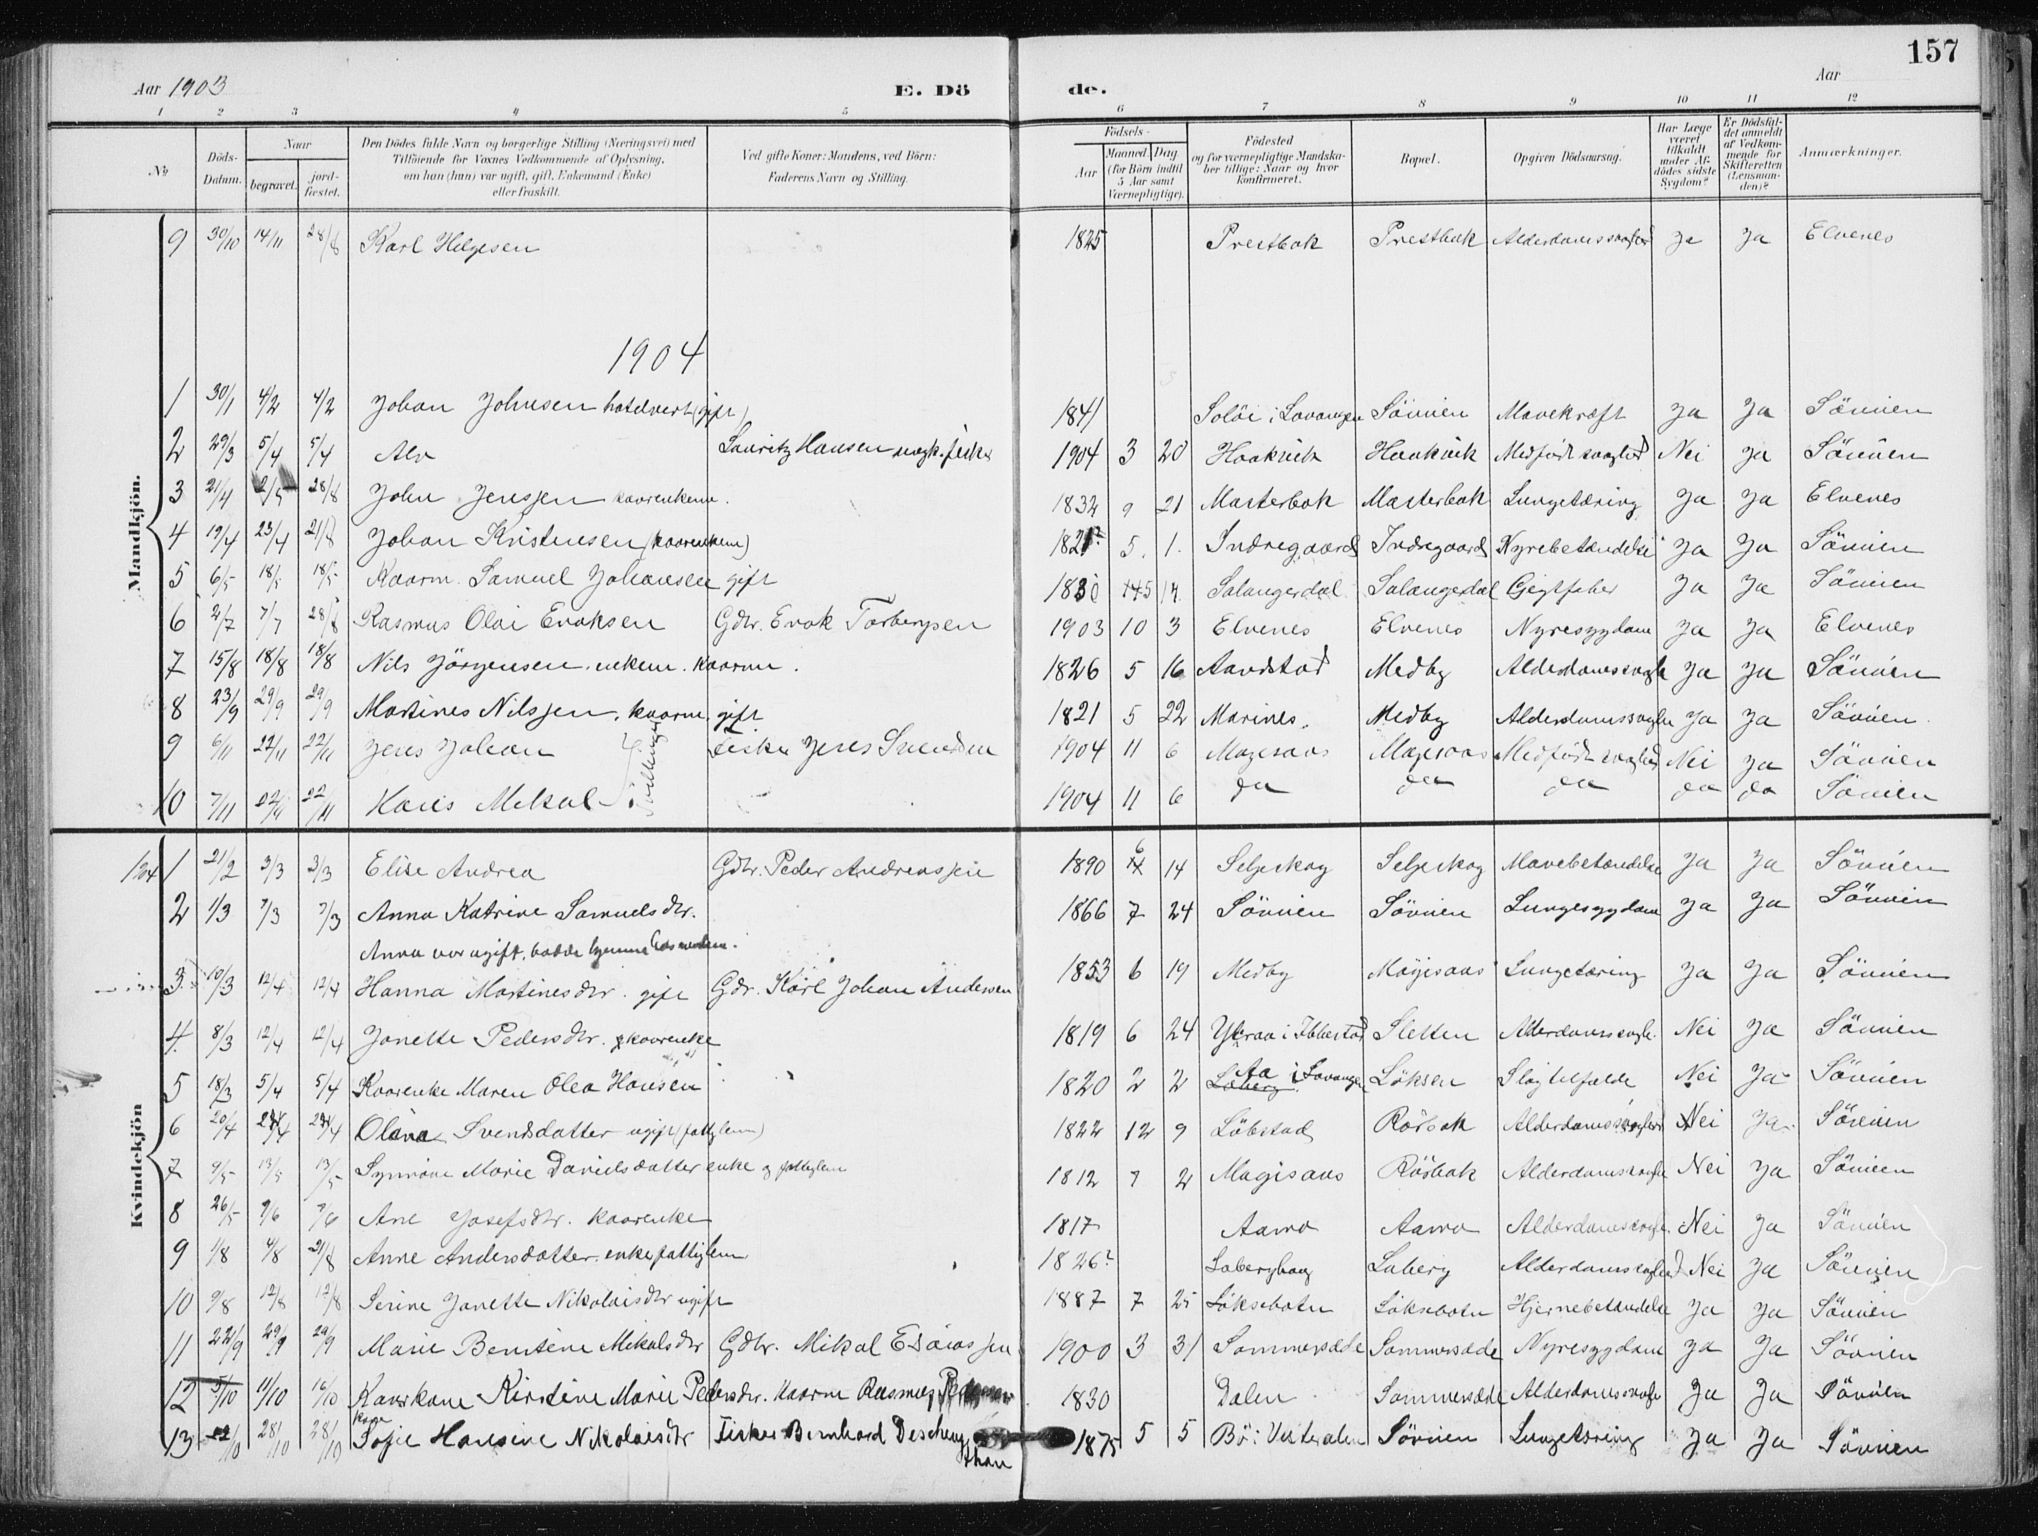 157
Aar 1903 E. Dö de. Aar
1 2 3 4 5 6 7 8 9 10 11 12
No Döds-Datum. Naar begravet. jord-fæstet. Den Dödes fulde Navn og borgerlige Stilling (Næringsvei) med Tilföiende for Voxnes Vedkommende af Oplysning, om han (hun) var ugift, gift, Enkemand (Enke) eller fraskilt. Ved gifte Koner: Mandens, ved Börn: Faderens Navn og Stilling. Födsels- Aar Maaned. Dag. (for Börn indtil 5 Aar samt Værnepligtige). Födested og for værnepligtige Mandskaber tillige: Naar og hvor konfirmeret. Bopæl. Opgiven Dödsaarsag. Har Læge været tilkaldt under Afdödes sidste Sygdom? Er Dödsfaldet anmeldt af Vedkommende for Skifteretten (Lensmanden)? Anmærkninger.
Mandkjön.
9 30/10 14/11 28/8 Karl Helgesen 1825 Prestbak Prestbak Alderdomssvaghed Ja Ja Elvenes
1904
1 30/1 4/2 4/2 Johan Johnsen hotelvert (gift) 1841 Soløi i Lavangen Söveien Mavekræft Ja Ja Söveien
2 29/3 5/4 5/4 Alv Lauritz Hansen ungk. fisker 1904 3 20 Haakvik Haakvik Medfödt svaghed Nei Ja Söveien
3 21/4 2/5 28/8 John Jenssen kaarenkem. 1832 9 21 Masterbak Masterbak Lungetæring Ja Ja Elvenes
4 19/4 23/4 21/8 Johan Kristensen (kaarenkem) 5. 1. Indregaard Indregaard Nyrebetændelse Ja Ja Söveien
5 6/5 18/5 18/5 Kaarm. Samuel Johansen gift 1830 Salangsdal Salangsdal Gigtfeber Ja Ja Söveien
6 2/7 7/7 28/8 Rasmus Olai Enoksen Gdbr. Enok Torbergsen 1903 10 3 Elvenes Elvenes Nyresygdom Ja Ja Elvenes
7 15/8 18/8 18/8 Nils Jörgensen. enkem. kaarm. 1826 5 16 Aandstad Medby Alderdomssvagh Ja Ja Söveien
8 23/9 29/9 29/9 Martines Nilssen, kaarm. gift 1821 5 22 Marines. Medby Alderdomssvagh Ja Ja Söveien.
9 6/11 22/11 22/11 Jens Johan Tvillinger fisker Jens Svendsen 1904 11 6 Magesaas Magesaas Medfödt svaghed Nei Ja Söveien
10 7/11 22/11 22/11 Hans Mikal 1904 11 6 da da da da da Söveien
Kvindekjön
1904 1 21/2 3/3 3/3 Elise Andrea Gdbr. Peder Andreassen 1890 6 14 Seljeskog Seljeskog Mavebetændelse Ja Ja Söveien
2 1/3 7/3 7/3 Anna Katrine Samuelsdtr. 1866 7 24 Söveien Söveien Lungesygdom Ja Ja Söveien
Anna var ugift, hadde hjemme hos
3. 10/3 12/4 12/4 Hanna Martinesdtr. gift Gdr. Karl Johan Andersen 1853 6 19 Medby Magisaas Lungetæring Ja Ja Söveien
4. 8/3 12/4 12/4 Janette Pedersdtr. kaarenke 1819 6 24 Ytraa i Ibbestad Sletten Alderdomssvagh. Nei Ja Söveien
5 18/3 5/4 5/4 Kaarenke Maren Olea Hansen 1820 2 2 Laberg Aa i Lavangen Löksen Slagtilfælde Nei Ja Söveien
6 20/4 27/4 27/4 Olava Svendsdatter ugift (fattiglem) 1822 12 9 Löbstad Rösbak Alderdomssvaghed Nei Ja. Söveien
7 9/5 13/5 13/5 Synnöve Marie Danielsdatter enke og fattiglem 1812 7 2 Magisaas Rösbak Alderdomssvagh Nei Ja Söveien
8 26/5 9/6 9/6 Ane Josefsdtr. kaarenke 1817 Alderdomssvagh. Nei Ja Söveien
9 1/8 4/8 21/8 Anne Andersdatter. enke, fattiglem 1826? Laberghaug Laberg Alderdomssvaghed Nei Ja Söveien
10 9/8 12/8 12/8 Serine Janette Nikolaisdtr ugift 1887 7 25 Löksebotn Löksebotn Hjernebetændelse Ja Ja Söveien
11 22/9 29/9 29/9 Marie Berntine Mikalsdtr Gdbr. Mikal Esaiassen 1900 3 31 Sommersæde Sommersæde Nyresygdom Ja Ja Söveien
12 5/10 11/10 16/10 Kaarkone Kirstine Marie Pedersdtr. Kaarm Rasmus 1830 Dalen Sommersæde Alderdomssvagh Ja Ja Söveien
13 28/10 28/10 kone Sofie Hansine Nikolaisdtr Fisker Bernhard 1875 5 5 Bö i Vesteralen Söveien Lungetæring Ja Ja Söveien